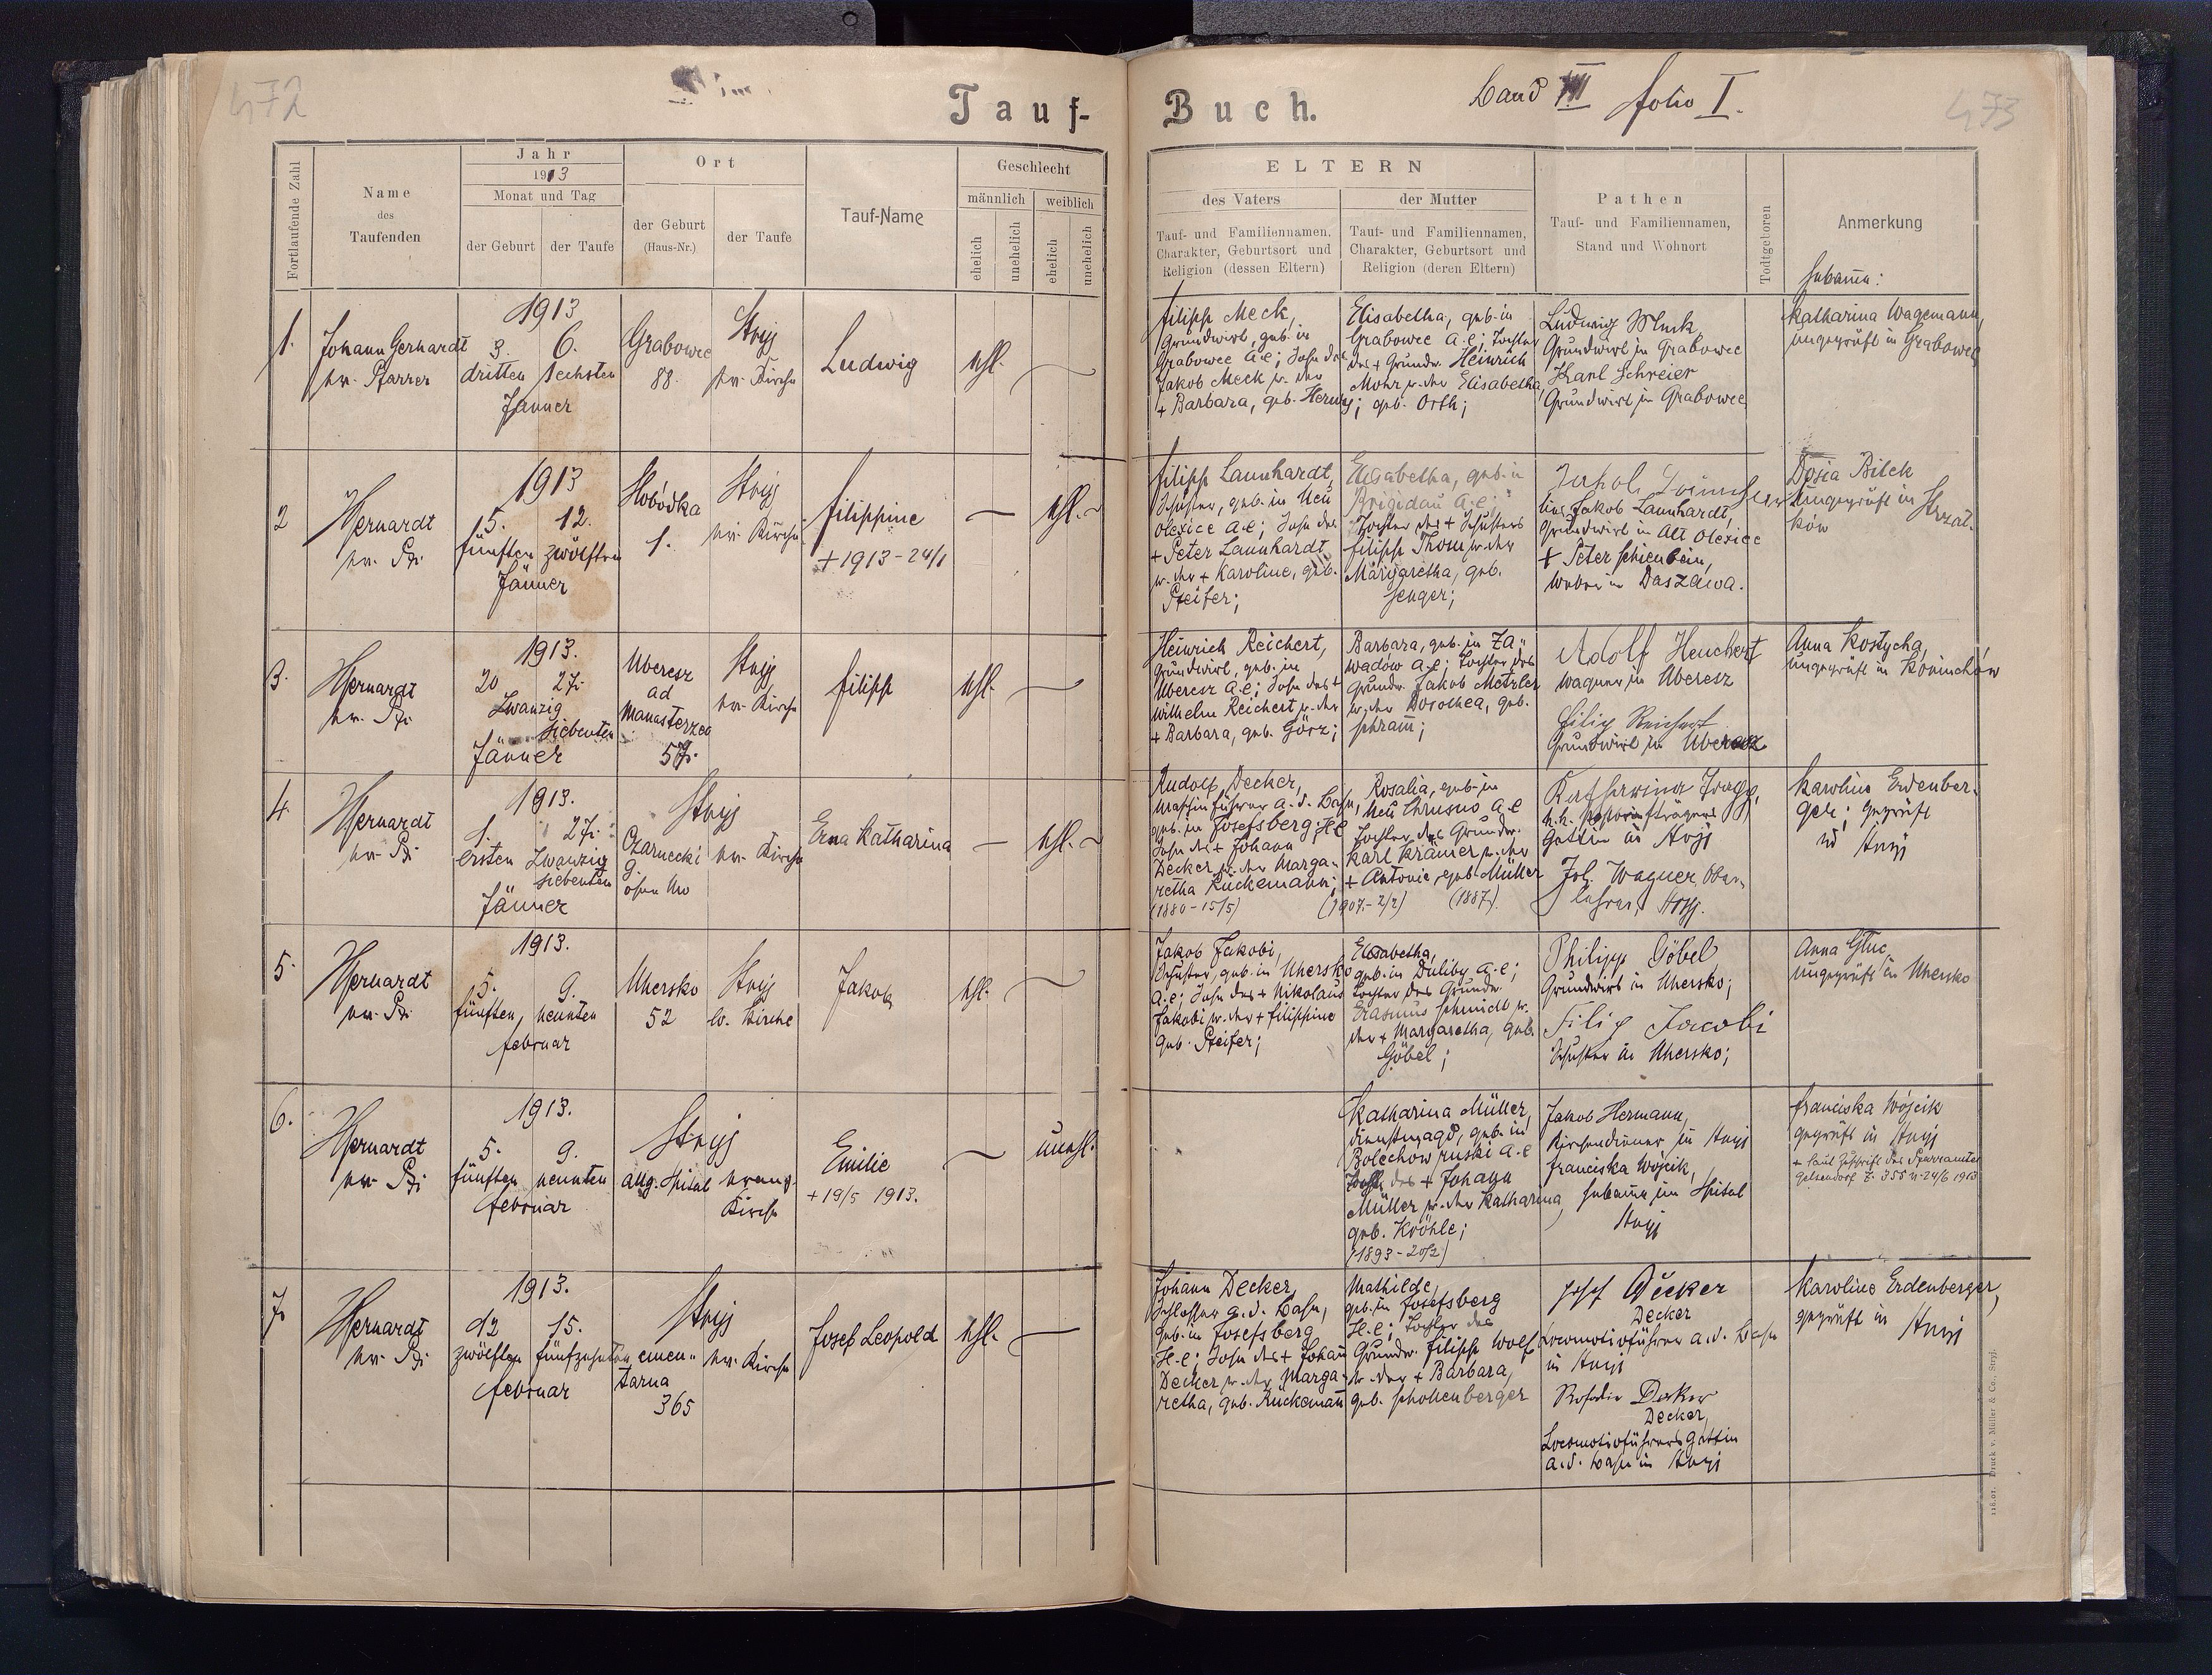 472
Tauf-
Buch.
Band III folio I.
473
Fortlaufende Zahl
Name
des
Taufenden
Jahr
1913
Monat und Tag
der Geburt
der Taufe
Ort
der Geburt
(Haus-Nr.)
der Taufe
Tauf-Name
Geschlecht
männlich
weiblich
ehelich
unehelich
ehelich
unehelich
ELTERN
des Vaters
Tauf- und Familiennamen,
Charakter, Geburtsort und
Religion (dessen Eltern)
der Mutter
Tauf- und Familiennamen,
Charakter, Geburtsort und
Religion (deren Eltern)
Pathen
Tauf- und Familiennamen,
Stand und Wohnort
Todtgeboren
Anmerkung
Hebamme:
1.
Johann Gerhardt
ev. Pfarrer
1913
3. 6.
dritten sechsten
Jänner
Grabowce
88.
Stryj
ev. Kirche
Ludwig
ehl.
Filipp Meck,
Grundwirt, geb. in
Grabowce A.C; Sohn des
Jakob Meck u. der
+ Barbara, geb. Herwy;
Elisabetha, geb. in
Grabowce A.C; Tochter
des + Grundw. Heinrich
Mohr u. der Elisabetha,
geb. Orth;
Ludwig Mück,
Grundwirt in Grabowce
Karl Schreier
Grundwirt in Grabowce
Katharina Wagemann,
ungeprüft in Grabowce
2
Gerhardt
ev. Pfr
1913
5. 12.
fünften zwölften
Jänner
Slobódka
1.
Stryj
ev. Kirche
Filippine
+ 1913 - 24/1
ehl.
Filipp Launhardt,
Schuster, geb. in Neu
Olexice A.C; Sohn des
+ Peter Launhardt
u. der + Karoline, geb.
Pfeifer;
Elisabetha, geb. in
Brigidau A.C;
Tochter des + Schusters
Filipp Thom u. der
Margaretha, geb.
Senger;
Jakob
Jakob Launhardt,
Grundwirt in Alt Olexice
+ Peter Schienbein,
Weber in Daszawa.
Dosia Bilek
ungeprüft in Strzał-
ków
3.
Gerhardt
ev. Pfr
1913.
20 27.
Zwanzig
siebenten
Jänner
Uberesz
ad
Manasterzec
57.
Stryj
ev. Kirche
Filipp
ehl.
Heinrich Reichert,
Grundwirt, geb. in
Uberesz A.C; Sohn des +
Wilhelm Reichert u. der
+ Barbara, geb. Görz;
Barbara, geb. in Za-
wadów A.C; Tochter des
Grundw. Jakob Metzler
u. der Dorothea, geb.
Schramm;
Adolf Heuchert
Wagner in Uberesz
Filip Reichert
Grundwirt in Uberesz
Anna Kostycha,
ungeprüft in Koniuchów
4.
Gerhardt
ev. Pfr
1913.
1. 27.
ersten Zwanzig
siebenten
Jänner
Stryj
Czarnecki
g.
ohne No
ev. Kirche
Erna Katharina
ehl.
Rudolf Decker,
Maschinführer a. d. Bahn,
geb. in Josefsberg H.C
Sohn des + Johann
Decker u. der Marga-
retha Rückemann;
(1880 - 15/5)
Rosalia, geb. in
Neu Chrusno A.C
Tochter des Grundw.
Karl Krämer u. der
+ Antonie, geb. Müller
(1907.- 2/2) (1887).
Katharina
k.k.
Gattin in Stryj
Joh. Wagner, Ober-
lehrer, Stryj.
Karoline Erdenber-
ger; geprüft
in Stryj
5.
Gerhardt
ev. Pfr
1913.
5. 9.
fünften, neunten
Februar
Uhersko
52
Stryj
ev. Kirche
Jakob
ehl.
Jakob Jakobi,
Schuster, geb. in Uhersko
A.C; Sohn des + Nikolaus
Jakobi u. der + Filippine
geb. Pfeifer;
Elisabetha,
geb. in Duliby A.C;
Tochter des Grundw.
Erasmus Schmidt u.
der + Margaretha, geb.
Göbel;
Philipp Göbel
Grundwirt in Uhersko;
Filip Jacobi
Schuster in Uhersko;
Anna Gluc,
ungeprüft in Uhersko
6.
Gerhardt
ev. Pfr
1913.
5. 9.
fünften neunten
Februar
Stryj
allg. Spital
evang.
Kirche
Emilie
+ 19/5 1913.
unehl.
Katharina Müller,
Dienstmagd, geb. in
Bolechow ruski A.C
Tochter des + Johann
Müller u. der Katharina,
geb. Kröhle;
(1893 - 20/2)
Jakob Hermann,
Kirchendiener in Stryj
Franciska Wójcik,
Hebamme im Spital
Stryj
Franciska Wójcik
geprüft in Stryj
+ laut Zuschrift des Pfarramtes
Gelsendorf Z. 355 u. 24/6 1913
7.
Gerhardt
ev. Pfr
1913.
12 15.
zwölften fünfzehnten
Februar
Stryj
cmen-
tarna
365
ev. Kirche
Josef Leopold
ehl.
Johann Decker,
Schlosser a. d. Bahn,
geb. in Josefsberg
H.C; Sohn des + Johann
Decker u. der Marga-
retha, geb. Rückemann
Mathilde,
geb. in Josefsberg
H.C; Tochter des
Grundw. Filipp Wolf
u. der + Barbara,
geb. Schollenberger
Josef Decker
Decker
Locomotivführer a. d. Bahn
in Stryj
Rosalia Decker
Decker,
Locomotivführers Gattin
a. d. Bahn in Stryj
Karoline Erdenberger,
geprüft in Stryj
118.01. Druck v. Müller & Co., Stryj.